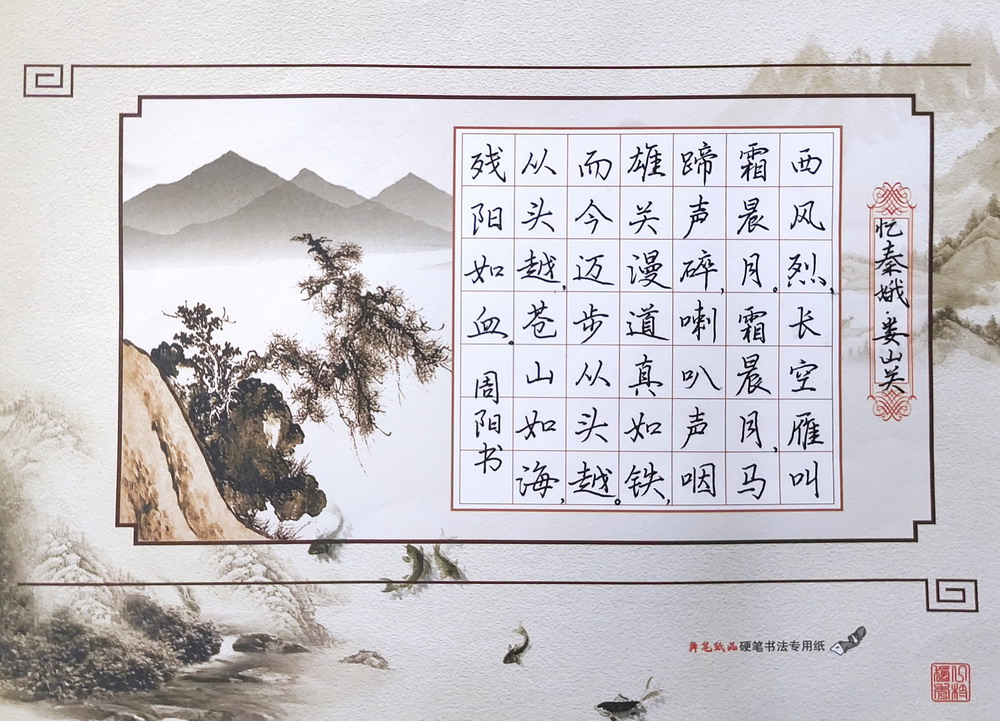 忆秦娥·娄山关
西风烈,长空雁叫
霜晨月。霜晨月,马
蹄声碎,喇叭声咽
雄关漫道真如铁,
而今迈步从头越。
从头越,苍山如海,
残阳如血。
周阳书
笔纸品硬笔书法专用纸